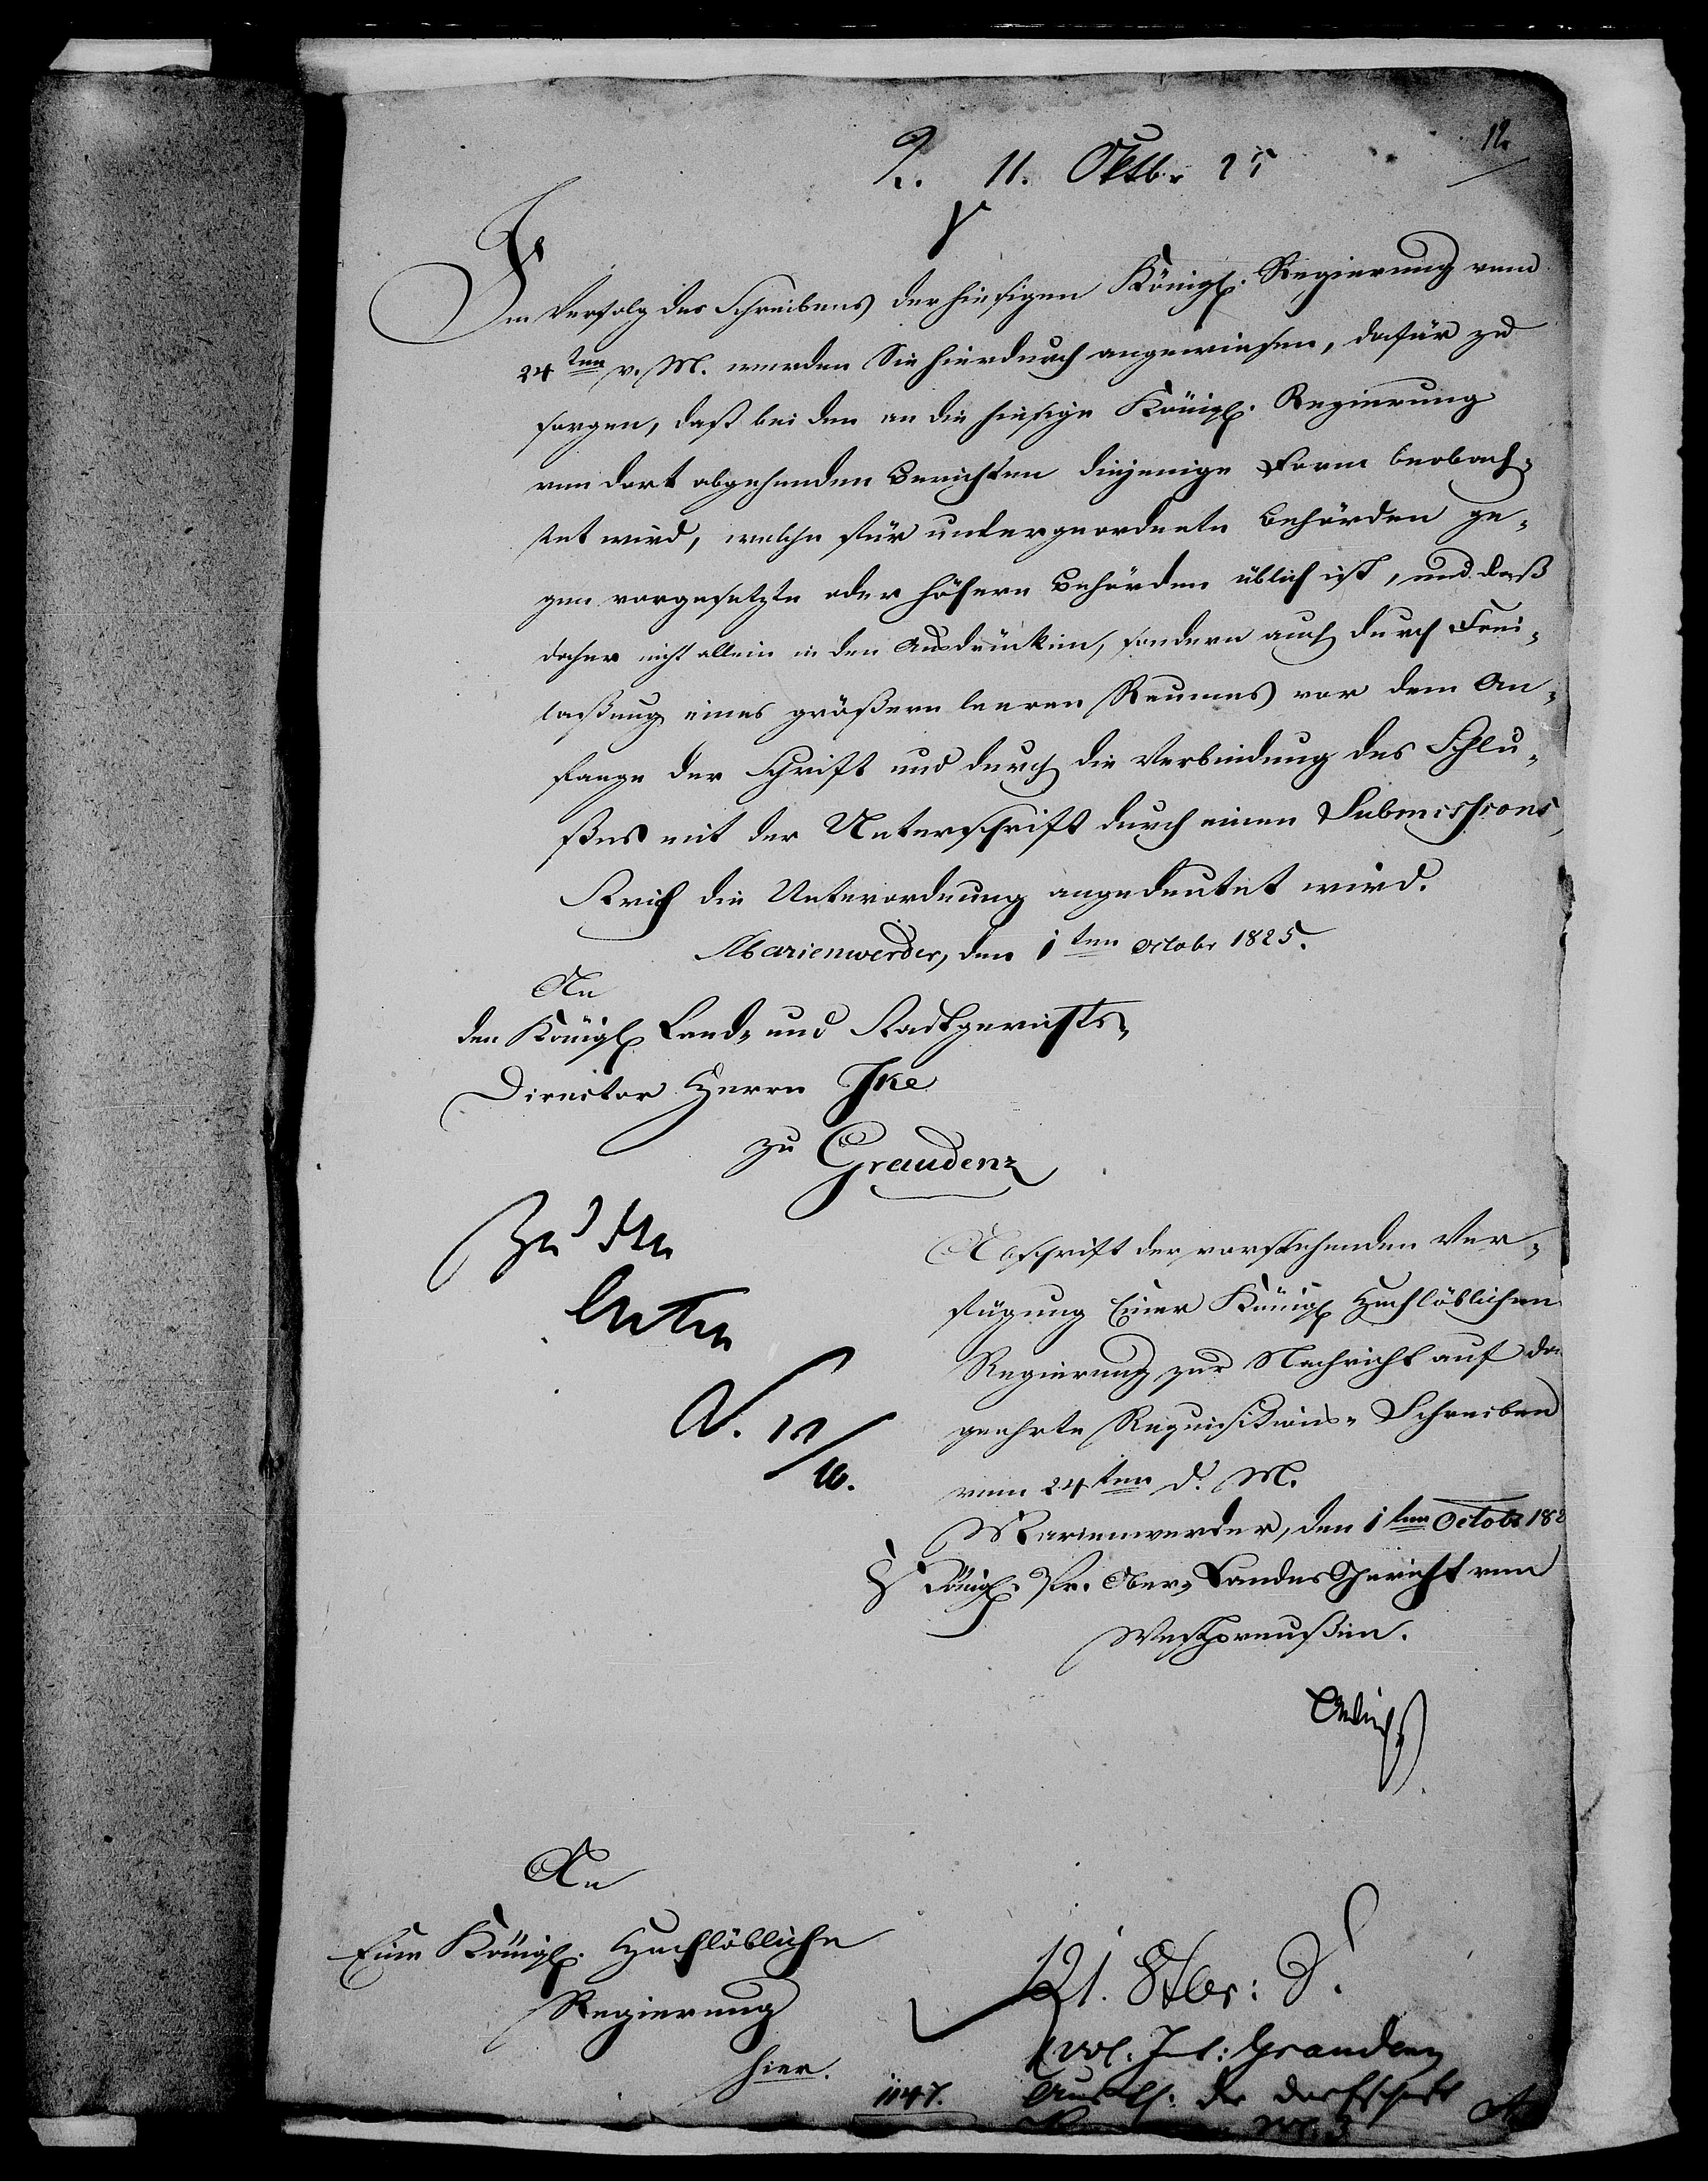 12
11. Oktbr 25
Im Verfolg des Schreibens der hiesigen Königl. Regierung vom
24ten v. M. werden Sie hierdurch angewiesen, dafür zu
sorgen, daß bei den an die hiesige Königl. Regierung
von dort abgehenden Berichten diejenige Form beobach-
tet wird, welche für untergeordnete Behörden ge-
gen vorgesetzte oder höhere Behörden üblich ist, und daß
daher nicht allein in den Ausdrücken, sondern auch durch Frei-
laßung eines größern leeren Raumes vor dem An-
fange der Schrift und durch die Verbindung des Schlu-
ßes mit der Unterschrift durch einen Submissions-
Strich die Unterordnung angedeutet wird.
Marienwerder, den 1ten Octobr 1825.
An
den Königl Land- und Stadtgerichts-
Director Herrn Ike
zu Graudenz
Zu den
Acten
Abschrift der vorstehenden Ver-
fügung Einer Königl Hochlöblichen
Regierung zur Nachricht auf das
geehrte Requisitions-Schreiben
vom 24ten v. M.
Marienwerder, den 1ten Octobr 182
Königl. Pr. Ober-Landes Gericht von
Westpreußen.
An
Eine Königl. Hochlöbliche
Regierung
hier.
121. 8tbr:
Graudenz
1147. der